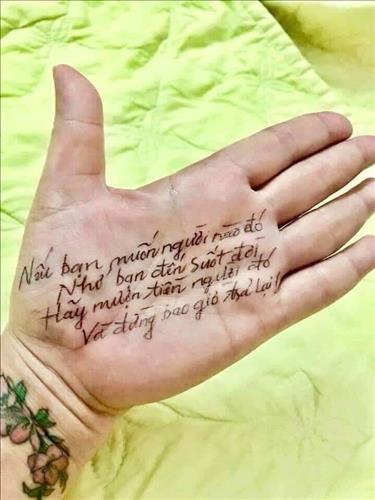 Nếu bạn muốn người nào đó
Nhớ bạn đến suốt đời
Hãy mượn tiền người đó
Và đừng bao giờ trả lại!